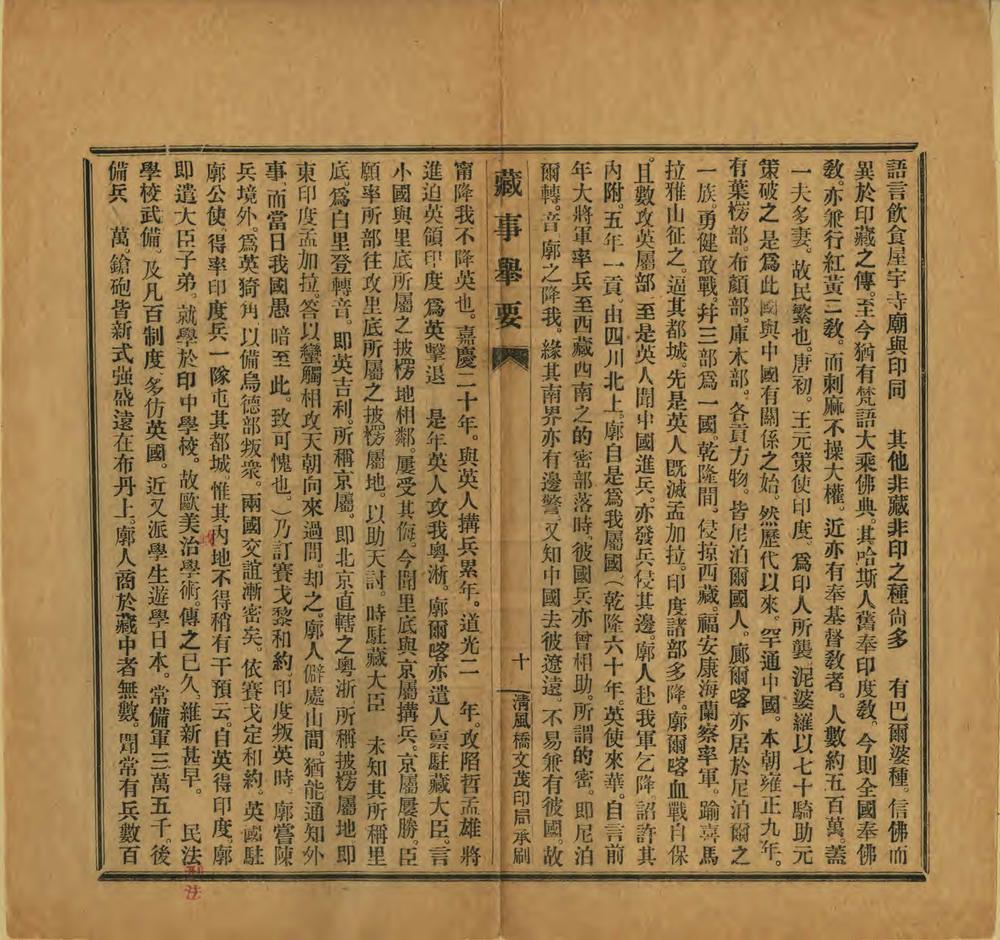 語言飲食屋宇寺廟與印同　其他非藏非印之種尙多　有巴爾婆種。信佛而
異於印藏之傳。至今猶有梵語大乘佛典。其哈斯人舊奉印度敎。今則全國奉佛
敎。亦兼行紅黃二敎。而刺麻不操大權。近亦有奉基督敎者。人數約五百萬。蓋
一夫多妻。故民繁也。唐初。王元策使印度。爲印人所襲。泥婆羅以七十騎助元
策破之。是爲此國與中國有關係之始。然歷代以來。罕通中國。本朝雍正九年。
有葉楞部。布顏部。庫木部。各貢方物。皆尼泊爾國人。廓爾喀亦居於尼泊爾之
一族。勇健敢戰。幷三部爲一國。乾隆間。侵掠西藏。福安康海蘭察率軍。踰喜馬
拉雅山征之。逼其都城。先是英人既滅孟加拉。印度諸部多降。廓爾喀血戰自保
。且數攻英屬部。至是英人聞中國進兵。亦發兵侵其邊。廓人赴我軍乞降。詔許其
內附。五年一貢。由四川北上。廓自是爲我屬國。（乾隆六十年。英使來華。自言前
年大將軍率兵至西藏西南之的密部落時。彼國兵亦曾相助。所謂的密。卽尼泊
爾轉。音。廓之降我。緣其南界亦有邊警。又知中國去彼遼遠。不易兼有彼國。故
藏事舉要
十
淸風橋文茂印局承刷
甯降我不降英也。嘉慶二十年。與英人搆兵累年。道光二　年。攻陷哲孟雄將
進迫英領印度。爲英擊退　是年英人攻我粵淅。廓爾喀亦遣人禀駐藏大臣。言
小國與里底所屬之披楞地相鄰。屢受其侮。今聞里底與京屬搆兵。京屬屢勝。臣
願率所部往攻里底所屬之披楞屬地。以助天討。時駐藏大臣　未知其所稱里
底。爲白里登轉音。卽英吉利。所稱京屬。卽北京直轄之粵浙。所稱披楞屬地。卽
東印度孟加拉。答以蠻觸相攻天朝向來過問。却之。廓人僻處山間。猶能通知外
事。而當日我國愚暗至此。致可愧也。）乃訂賽戈黎和約。印度叛英時。廓嘗陳
兵境外。爲英犄角。以備烏德部叛衆。兩國交誼漸密矣。依賽戈定和約。英國駐
廓公使。得率印度兵一隊屯其都城。惟其內地不得稍有干預云。自英得印度。廓
卽遣大臣子弟。就學於印中學校。故歐美治學術。傳之已久。維新甚早。　民法
政
刑法
學校武備。及凡百制度。多仿英國。近又派學生遊學日本。常備軍三萬五千。後
備兵　萬。鎗砲皆新式。强盛遠在布丹上。廓人商於藏中者無數。聞常有兵數百